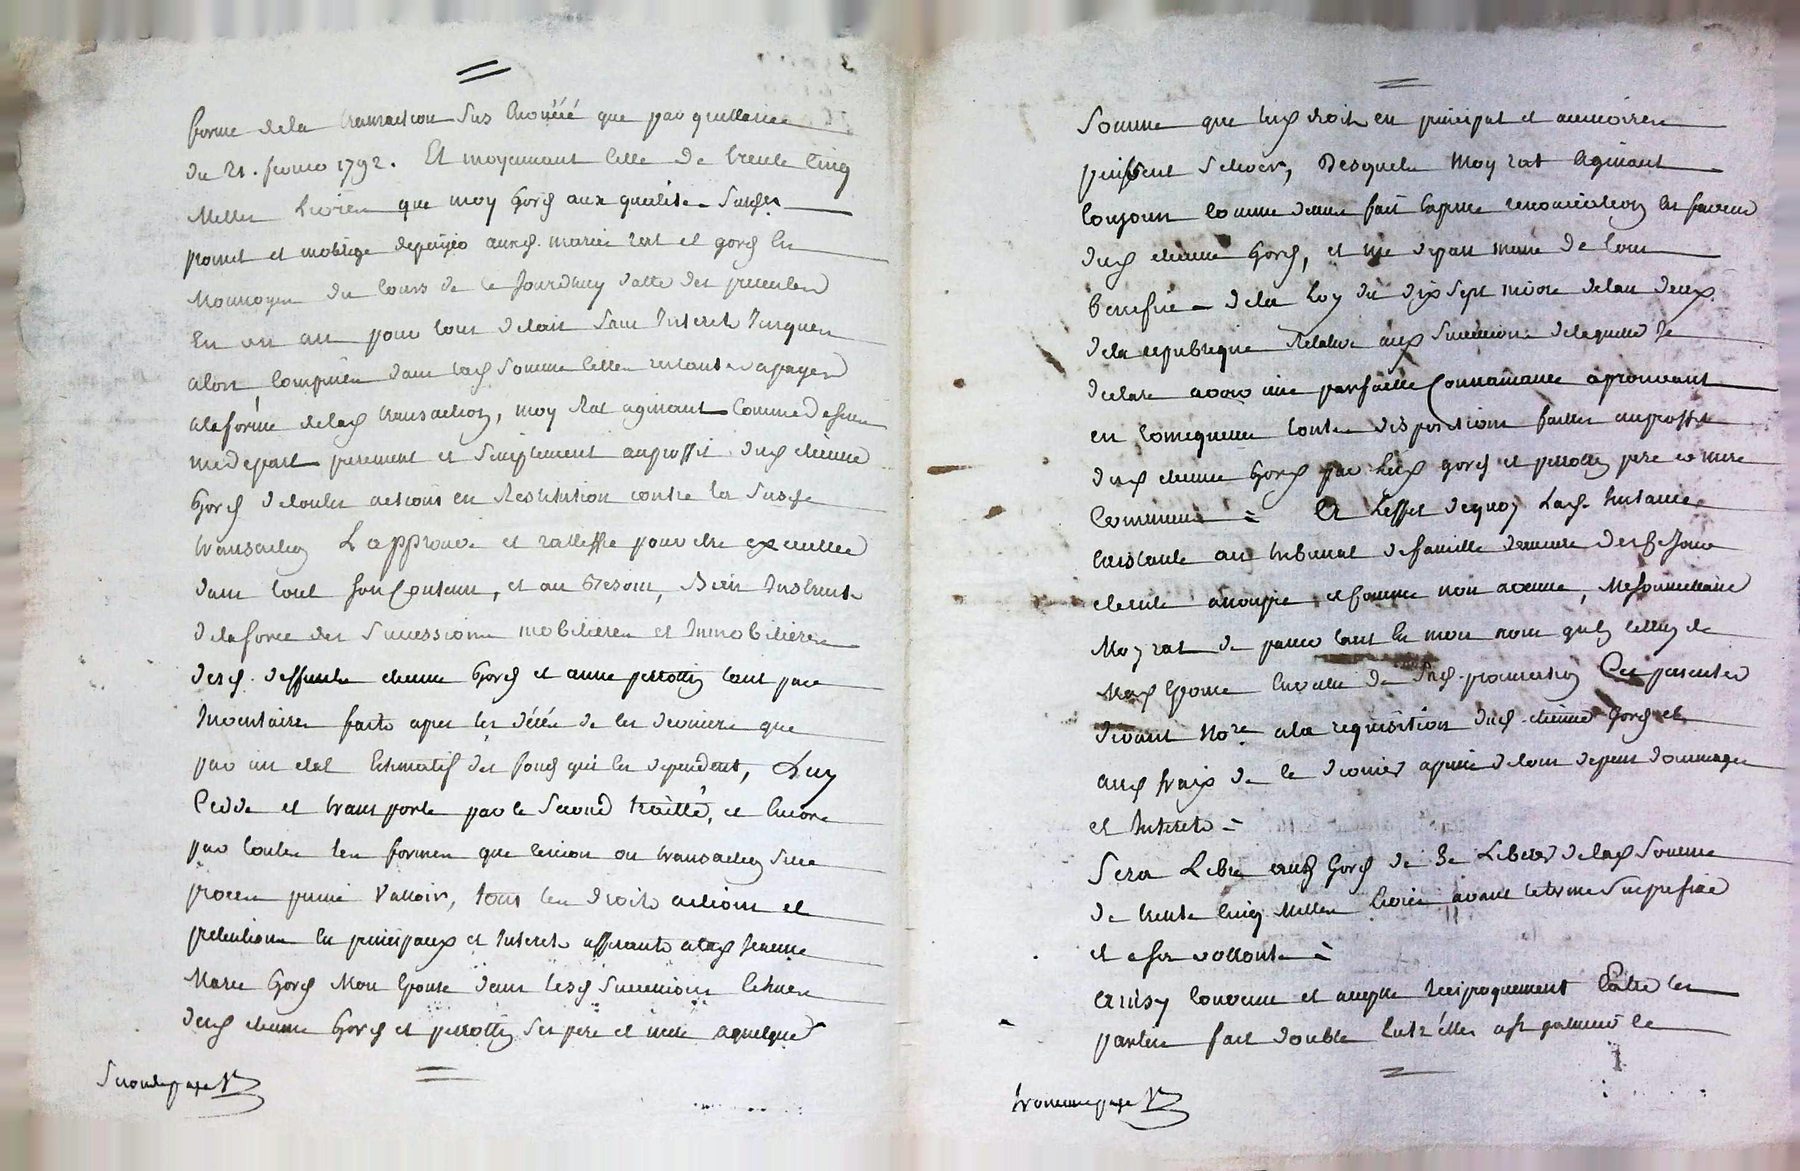 forme de la transaction sus énoncée que par quittance
du 21. 1792. Et moyennant celle de trente cinq
Milles Livres que moy Gorsf aux qualités susdes
promet et m'oblige de payer auxd. mariés rat et gorsf en
Monnoyes du cours de ce Jourdhuy datte des presentes
En un an pour tout délait sans Interets Jusques
alors comprises dans lad somme celles restantes a payer
a la forme de lad transaction, moy Rat agissant comme dessus
me depart purement et simplement au proffit dud etienne
Gorsf de toutes actions en Restitution contre la susde
transaction L'approuve et ratiffie pour être exécutée
dans tout son contenu, et au besoin, Bien Instruit
de la force des successions mobilieres et Immobilieres
desd. deffunts etienne Gorsf et anne perrottin tant par
Inventaires faits apres les décés de ces derniers que
par un etat Estimatif des fonds qui en dependent, Luy
Cedde et transporte par ce second traitté, et encore
par toutes les formes que cession ou transaction sur
proces puisse Valloir, tous les droits actions et
pretentions en principaux et Interets afferants a lad Jeanne
Marie Gorsf Mon Epouse dans lesd successions
desd etienne Gorsf et perrottin ses pere et mere a quelque
Seconde page
Somme que lesd droits en principal et accessoires
puissent s'élever, Desquels Moy rat agissant
toujours comme dessus fait expresse renonciation en faveur
dud etienne Gorsf, et me depart meme de tout
benefice de la Loy du dix sept nivose de l'an deux
de la republique Relative aux successions de laquelle Je
declare avoir une parfaitte Connaissance aprouvant
en consequence toutes dispositions faittes au proffit
dud etienne Gorsf par lesd gorsf et perrottin pere et mere
Communs = A L'effet de quoy Lad. Instance
existante au tribunal de famille demeure des ce Jour
eteinte assoupie et comme non avenue, Me soumettant
Moy rat de passer tant en mon nom qu'en celluy de
mad Epouse En vertu de sad. procuration Ces presentes
devant Nore a la requisition dud. etienne Gorsf et
aux fraix de ce dernier a peine de tous depens dommages
et Interets =
Sera Libre aud Gorsf de Se Liberer de lad Somme
de trente cinq Milles livres avant le terme susprefixé
et a sa vollonté =
Ainsy convenu et accepté reciproquement Entre les
parties fait double Entr'elles a
troisieme page